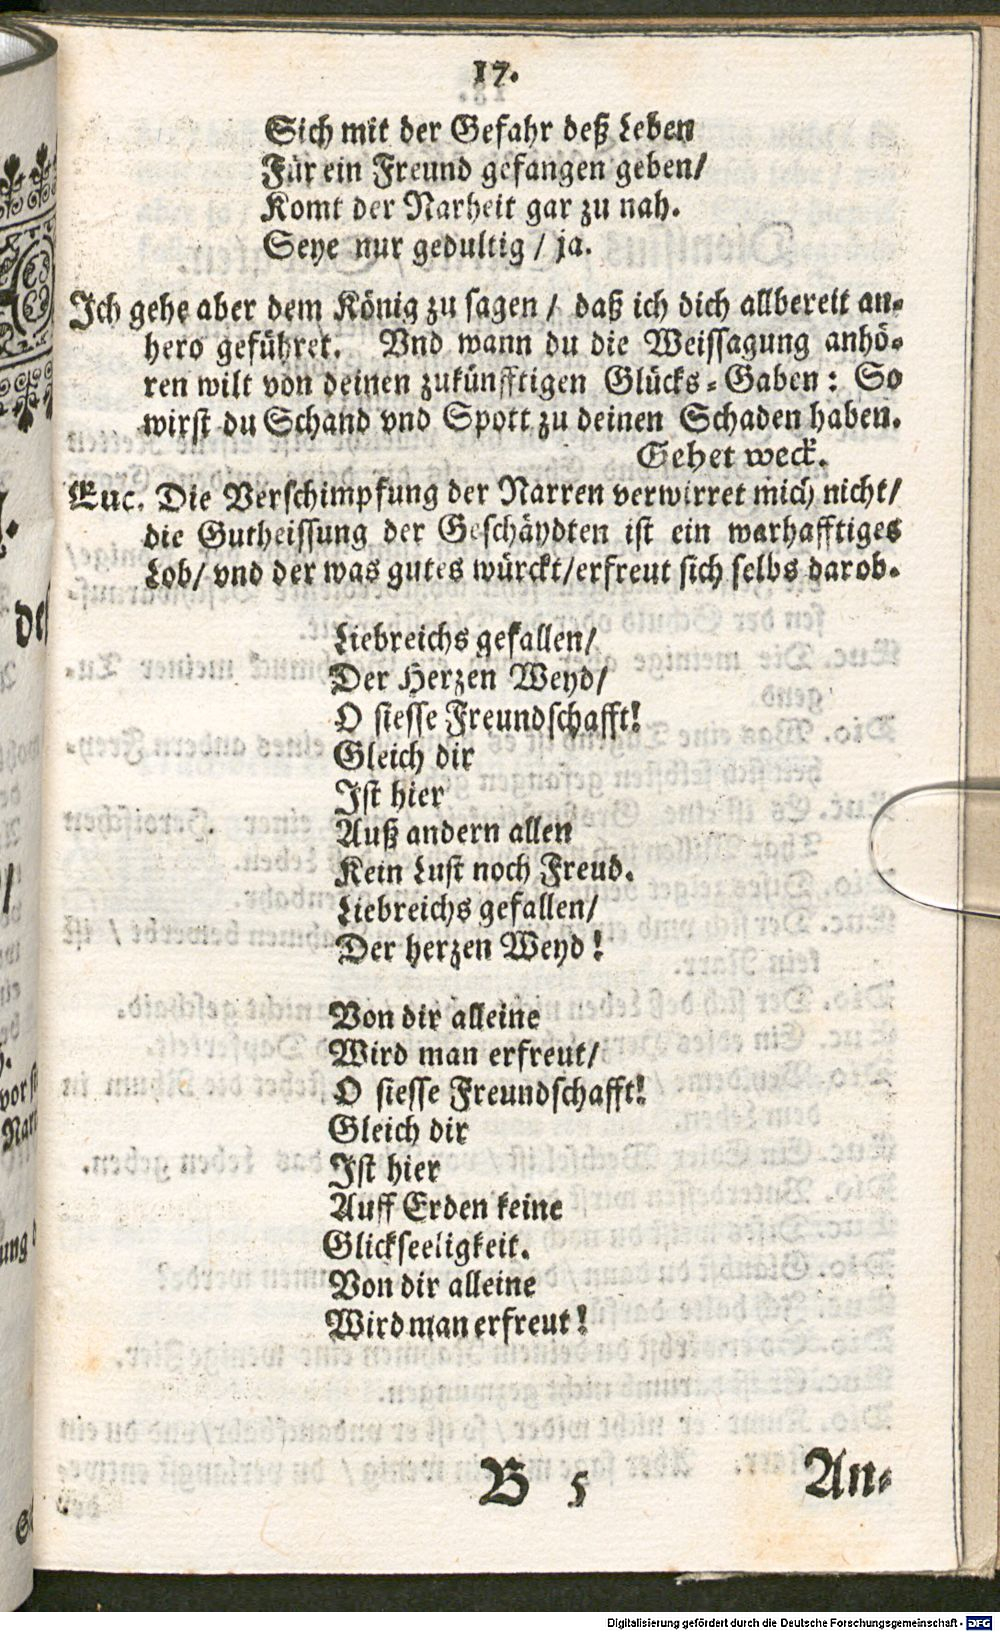 17.
Sich mit der Gefahr deß Leben
Für ein Freund gefangen geben/
Komt der Narheit gar zu nah.
Seye nur gedultig / ja.
Ich gehe aber dem König zu sagen / daß ich dich allbereit an-
hero geführet. Vnd wann du die Weissagung anhö-
ren wilt von deinen zukünfftigen Glücks-Gaben: So
wirst du Schand vnd Spott zu deinen Schaden haben.
Gehet weck.
Euc. Die Verschimpfung der Narren verwirret mich nicht/
die Gutheissung der Geschäydten ist ein warhafftiges
Lob/ vnd der was gutes würckt/erfreut sich selbs darob.
Liebreichs gefallen/
Der Herzen Weyd/
O siesse Freundschafft!
Gleich dir
Ist hier
Auß andern allen
Kein Lust noch Freud.
Liebreichs gefallen/
Der herzen Weyd!
Von dir alleine
Wird man erfreut/
O siesse Freundschafft!
Gleich dir
Ist hier
Auff Erden keine
Glickseeligkeit.
Von dir alleine
Wird man erfreut!
B 5 An-
Digitalisierung gefördert durch die Deutsche Forschungsgemeinschaft - DFG